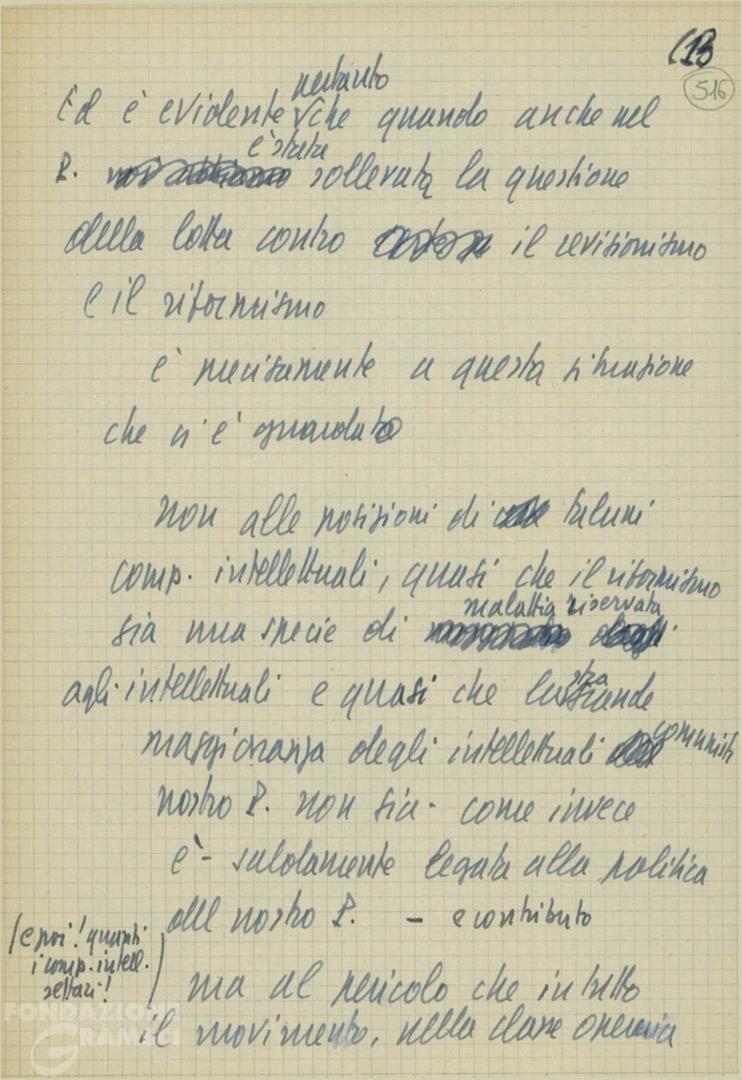 13
516
pertanto
Ed è evidente che quando anche nel
è stata
P. sollevata la questione
della lotta contro il revisionismo
e il riformismo
è precisamente a questa situazione
che si è guardato
non alle posizioni di taluni
comp. intellettuali, quasi che il riformismo
malattia riservata
sia una specie di
agli intellettuali e quasi che la stragrande
maggioranza degli intellettuali comunisti
nostro P. non sia - come invece
è - saldamente legata alla politica
del nostro P. - e contributo
(e poi! quanti
i comp. intell.
settari!)
ma al pericolo che in tutto
il movimento, nella classe operaia
FONDAZIONE
GRAMSCI